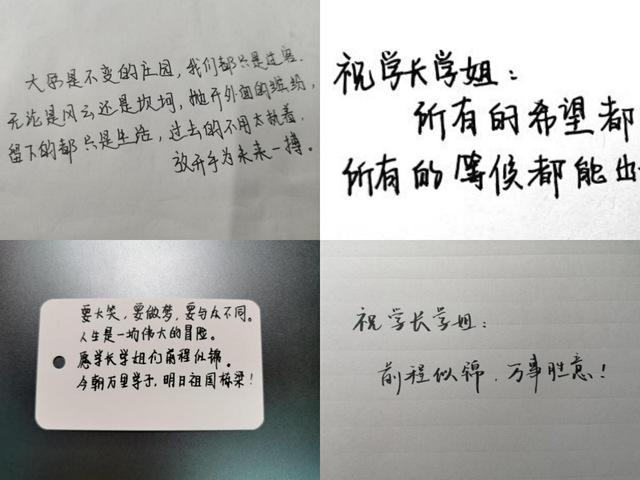 大厦是不变的庄园，我们都只是过客.
无论是风云还是坎坷，她开外面的缤纷，
留下的都只是生活，过去的不用太执着.
放开手为未来一搏。
祝学长学姐：
所有的希望都
所有的等候都能出
要大笑，要做梦，要与众不同。
人生是一场伟大的冒险。
愿学长学姐们前程似锦。
今朝万里学子，明日祖国栋梁！
祝学长学姐：
前程似锦，万事胜意！